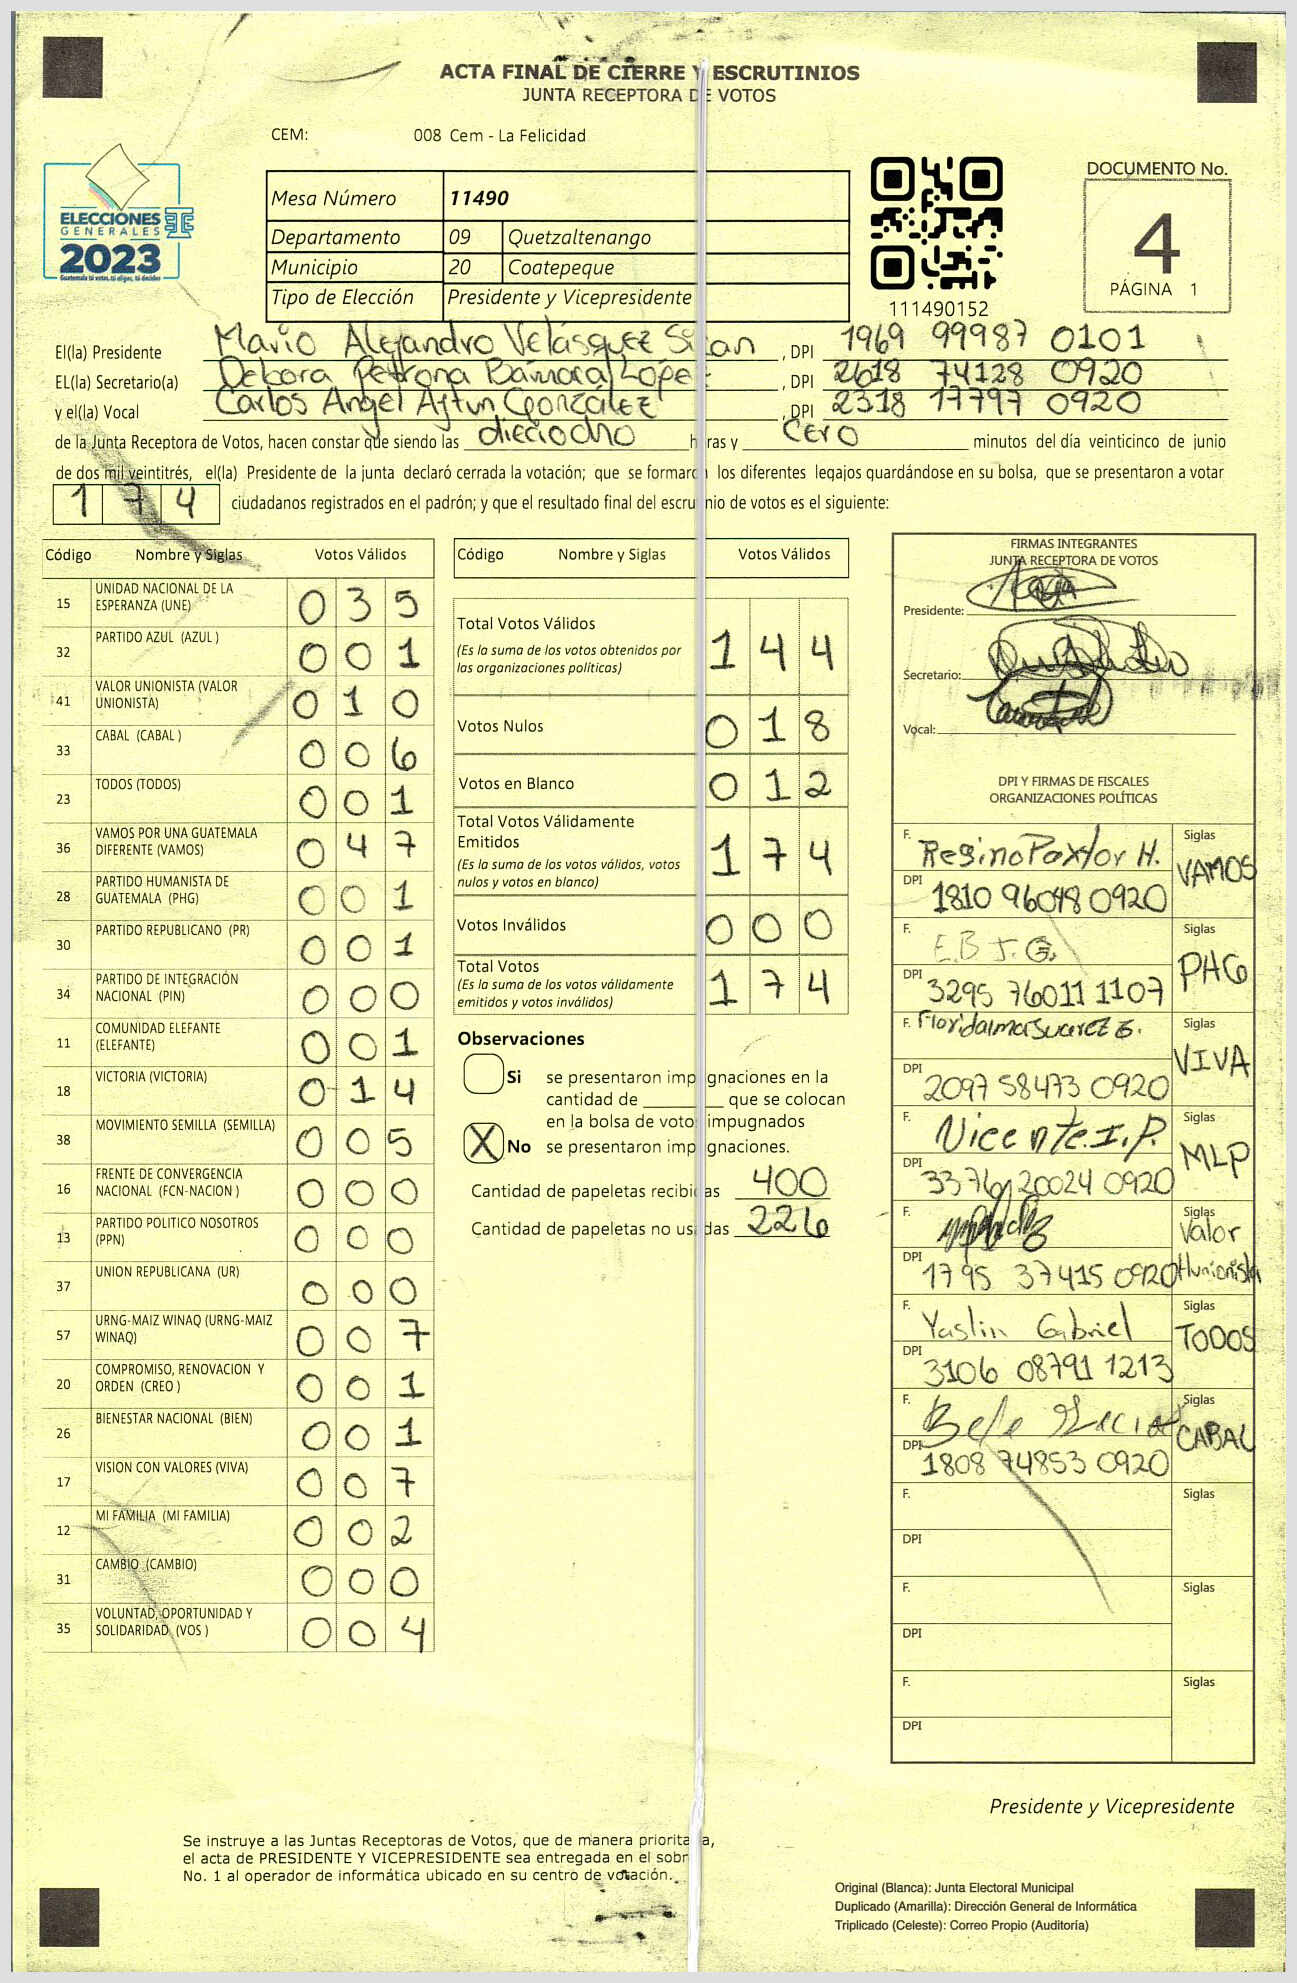 ACTA FINAL DE CIERRE Y ESCRUTINIOS
JUNTA RECEPTORA DE VOTOS
CEM: 008 Cem - La Felicidad
ELECCIONES
GENERALES
2023
Guatemala tú votas, tú eliges, tú decides
Mesa Número 11490
Departamento 09 Quetzaltenango
Municipio 20 Coatepeque
Tipo de Elección Presidente y Vicepresidente
111490152
DOCUMENTO No.
4
PÁGINA 1
El(la) Presidente Mario Alejandro Velásquez , DPI 1969 99987 0101
EL(la) Secretario(a) Debora Petrona Bámaca López , DPI 2618 74128 0920
y el(la) Vocal Carlos Angel Ajtun González , DPI 2318 17797 0920
de la Junta Receptora de Votos, hacen constar que siendo las dieciocho horas y Cero minutos del día veinticinco de junio
de dos mil veintitrés, el(la) Presidente de la junta declaró cerrada la votación; que se formaron los diferentes legajos guardándose en su bolsa, que se presentaron a votar
174 ciudadanos registrados en el padrón; y que el resultado final del escrutinio de votos es el siguiente:
Código Nombre y Siglas Votos Válidos
15 UNIDAD NACIONAL DE LA ESPERANZA (UNE) 035
32 PARTIDO AZUL (AZUL ) 001
41 VALOR UNIONISTA (VALOR UNIONISTA) 010
33 CABAL (CABAL ) 006
23 TODOS (TODOS) 001
36 VAMOS POR UNA GUATEMALA DIFERENTE (VAMOS) 047
28 PARTIDO HUMANISTA DE GUATEMALA (PHG) 001
30 PARTIDO REPUBLICANO (PR) 001
34 PARTIDO DE INTEGRACIÓN NACIONAL (PIN) 000
11 COMUNIDAD ELEFANTE (ELEFANTE) 001
18 VICTORIA (VICTORIA) 014
38 MOVIMIENTO SEMILLA (SEMILLA) 005
16 FRENTE DE CONVERGENCIA NACIONAL (FCN-NACION ) 000
13 PARTIDO POLITICO NOSOTROS (PPN) 000
37 UNION REPUBLICANA (UR) 000
57 URNG-MAIZ WINAQ (URNG-MAIZ WINAQ) 007
20 COMPROMISO, RENOVACION Y ORDEN (CREO ) 001
26 BIENESTAR NACIONAL (BIEN) 001
17 VISION CON VALORES (VIVA) 007
12 MI FAMILIA (MI FAMILIA) 002
31 CAMBIO (CAMBIO) 000
35 VOLUNTAD, OPORTUNIDAD Y SOLIDARIDAD (VOS ) 004
Código Nombre y Siglas Votos Válidos
Total Votos Válidos 144
(Es la suma de los votos obtenidos por
las organizaciones políticas)
Votos Nulos 018
Votos en Blanco 012
Total Votos Válidamente
Emitidos 174
(Es la suma de los votos válidos, votos
nulos y votos en blanco)
Votos Inválidos 000
Total Votos 174
(Es la suma de los votos válidamente
emitidos y votos inválidos)
Observaciones
Si se presentaron impugnaciones en la
cantidad de ________ que se colocan
en la bolsa de votos impugnados
X No se presentaron impugnaciones.
Cantidad de papeletas recibidas 400
Cantidad de papeletas no usadas 226
FIRMAS INTEGRANTES
JUNTA RECEPTORA DE VOTOS
Presidente:
Secretario:
Vocal:
DPI Y FIRMAS DE FISCALES
ORGANIZACIONES POLÍTICAS
F. Regino Paxtor H. Siglas VAMOS
DPI 1810 96048 0920
F. E.B J.G. Siglas PHG
DPI 3295 76011 1107
F. Floridalma Suarez G. Siglas VIVA
DPI 2097 58473 0920
F. Vicente.I.P. Siglas MLP
DPI 3376 20024 0920
F. Siglas Valor Hunionista
DPI 1795 37415 0920
F. Yaslin Gabriel Siglas TODOS
DPI 3106 08791 1213
F. Siglas CABAL
DPI 1808 74853 0920
F. Siglas
DPI
F. Siglas
DPI
F. Siglas
DPI
Presidente y Vicepresidente
Se instruye a las Juntas Receptoras de Votos, que de manera prioritaria,
el acta de PRESIDENTE Y VICEPRESIDENTE sea entregada en el sobre
No. 1 al operador de informática ubicado en su centro de votación.
Original (Blanca): Junta Electoral Municipal
Duplicado (Amarilla): Dirección General de Informática
Triplicado (Celeste): Correo Propio (Auditoría)